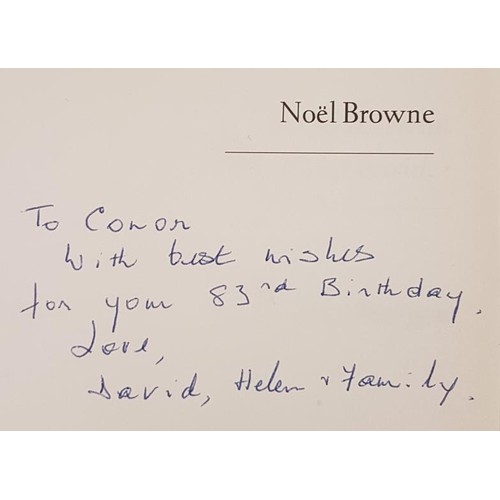 Noël Browne
To Conor
With best wishes
for your 83rd Birthday.
Love,
David, Helen & Family.